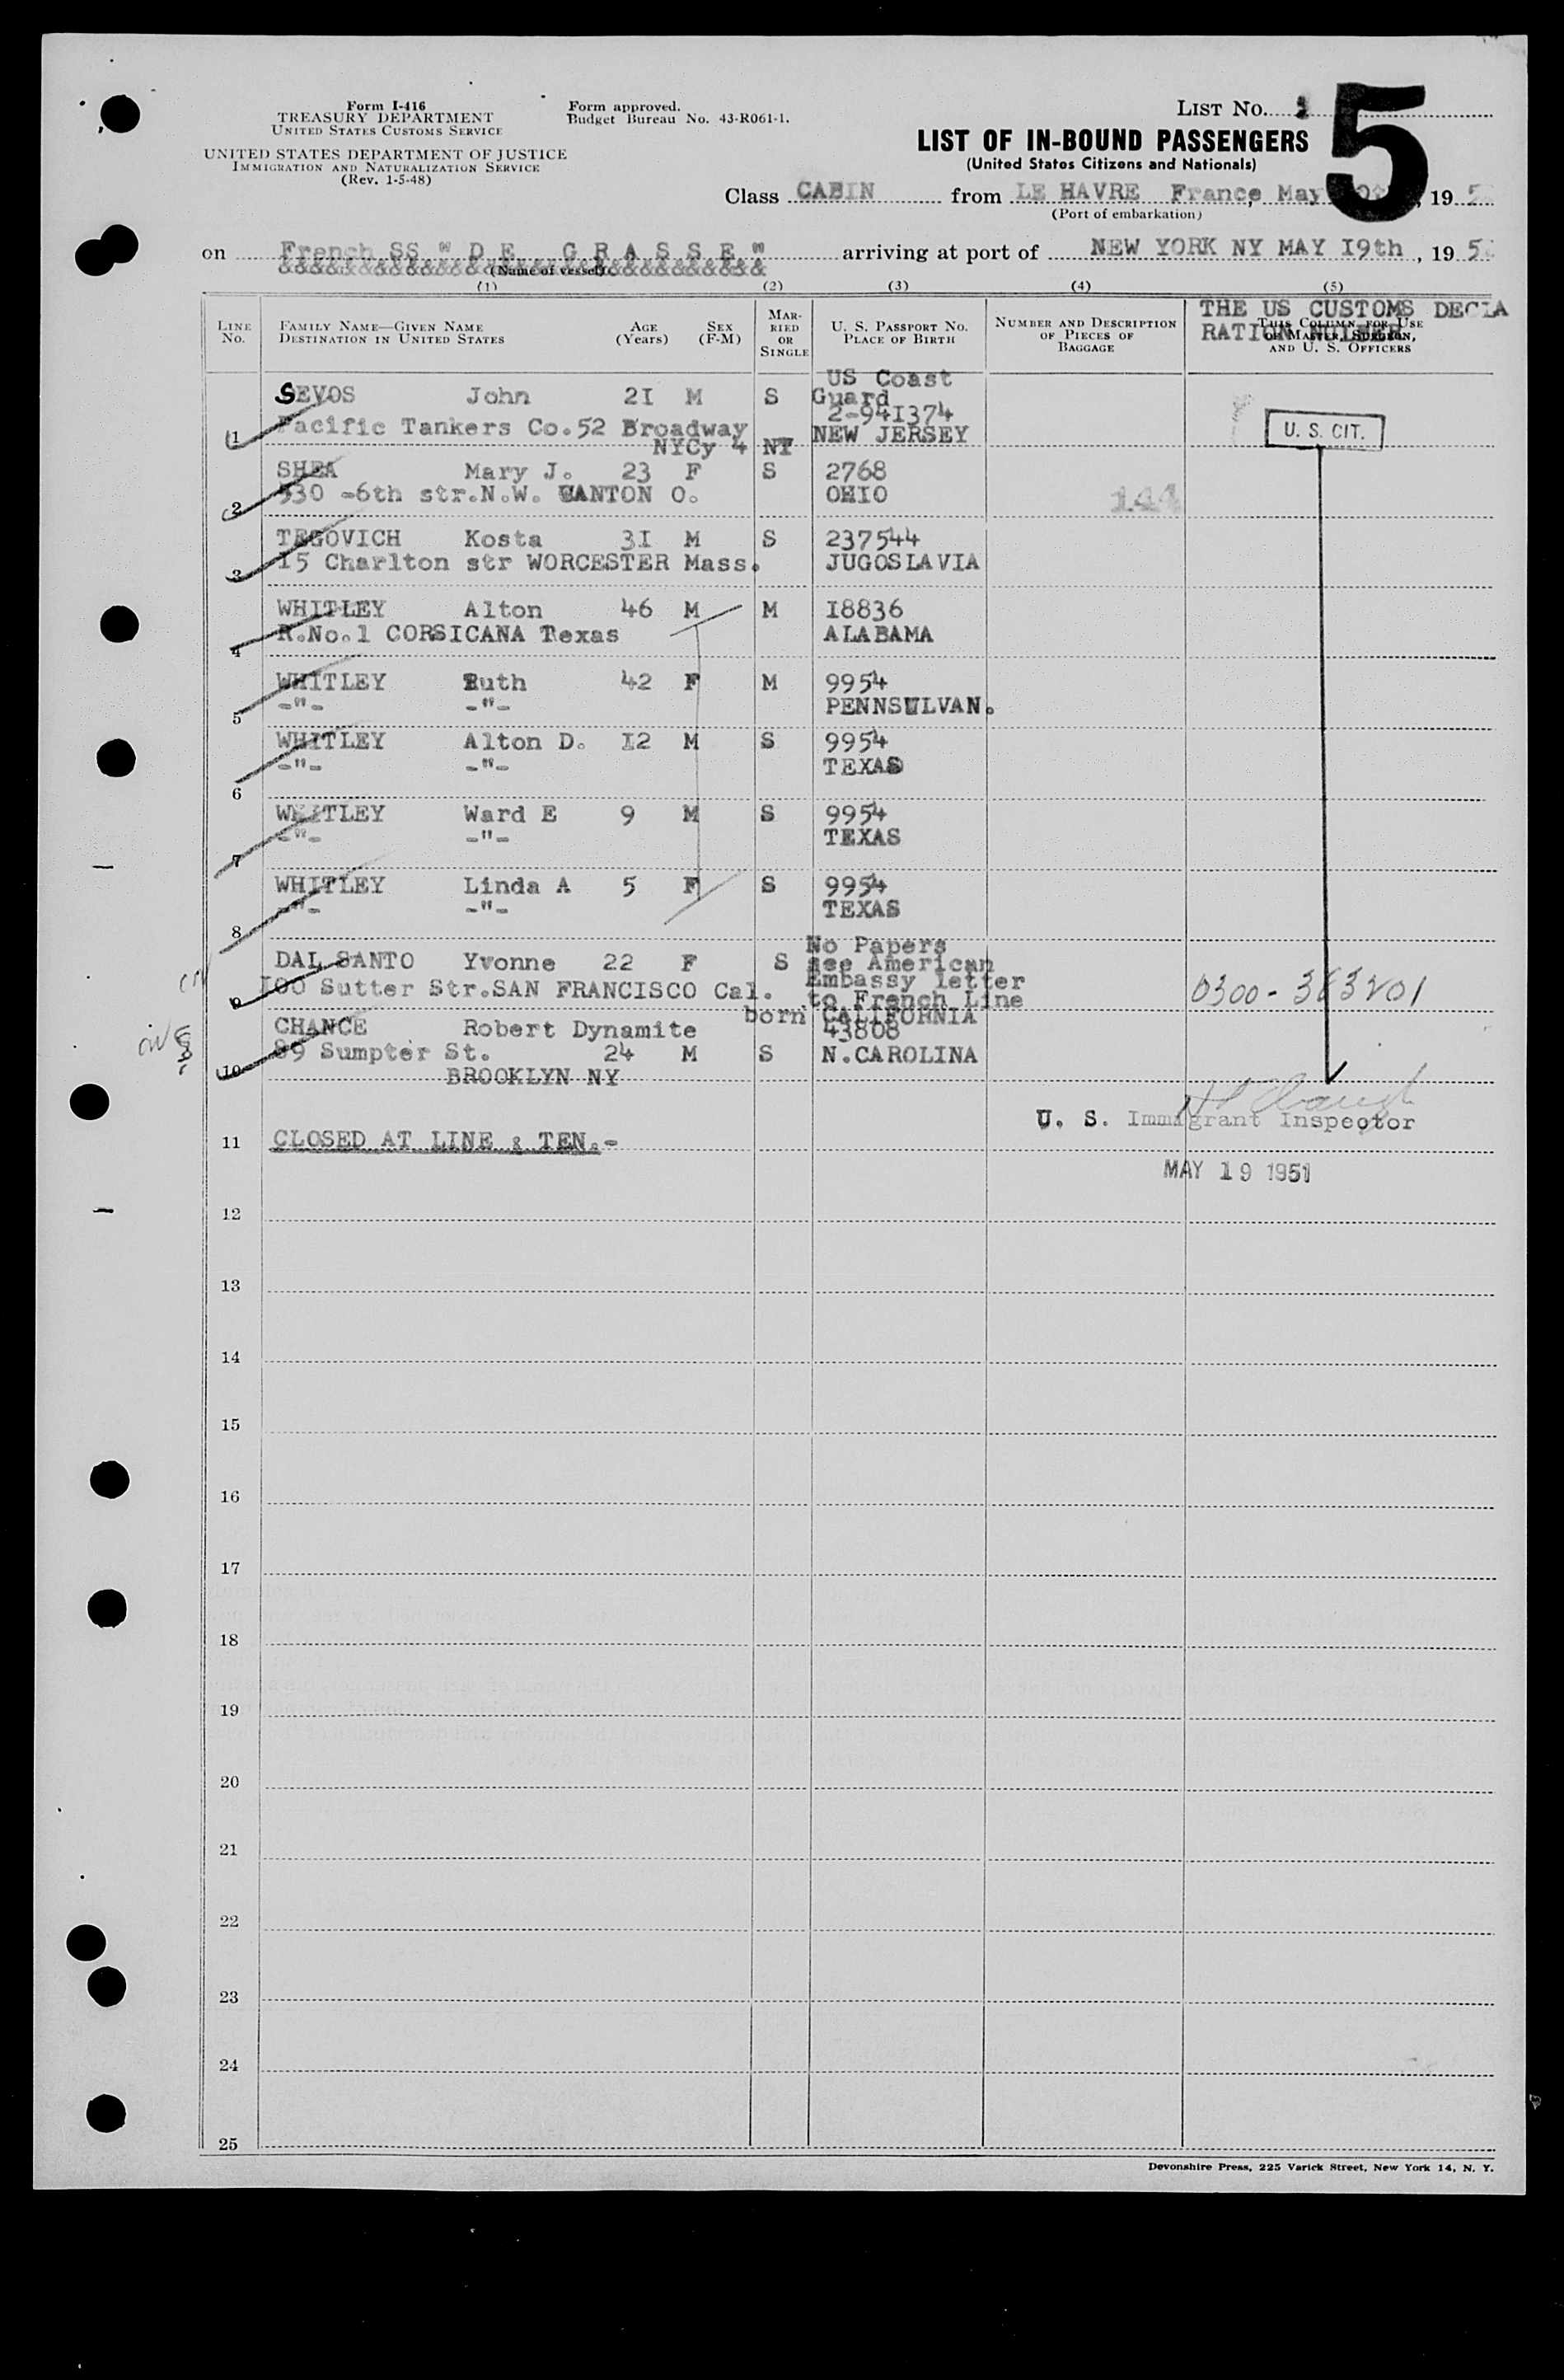 Form I-416
TREASURY DEPARTMENT
UNITED STATES CUSTOMS SERVICE
UNITED STATES DEPARTMENT OF JUSTICE
IMMIGRATION AND NATURALIZATION SERVICE
(Rev. 1-5-48)
Form approved.
Budget Bureau No. 43-R061-1.
LIST No.
5
LIST OF IN-BOUND PASSENGERS
(United States Citizens and Nationals)
Class CABIN from LE HAVRE France, May , 19
(Port of embarkation)
on French SS "D E G R A S S E" arriving at port of NEW YORK NY MAY I9th, 19 5
(Name of vessel)
(1) (2) (3) (4) (5)
LINE No.
FAMILY NAME—GIVEN NAME
DESTINATION IN UNITED STATES
AGE (Years)
SEX (F-M)
MARRIED OR SINGLE
U. S. PASSPORT NO.
PLACE OF BIRTH
NUMBER AND DESCRIPTION OF PIECES OF BAGGAGE
THE US CUSTOMS DECLA
RATION NUMBER
THIS COLUMN FOR USE OF MASTER, SURGEON, AND U. S. OFFICERS
1 SEVOS John 2I M S US Coast Guard 2-94I374
Pacific Tankers Co.52 Broadway NYCy 4 NY NEW JERSEY
U. S. CIT.
2 SHEA Mary J. 23 F S 2768
930 -6th str.N.W. CANTON O. OHIO
144
3 TEGOVICH Kosta 3I M S 237544
I5 Charlton str WORCESTER Mass. JUGOSLAVIA
4 WHITLEY Alton 46 M M I8836
R.No.1 CORSICANA Texas ALABAMA
5 WHITLEY Ruth 42 F M 9954
-"- -"- PENNSULVAN.
6 WHITLEY Alton D. I2 M S 9954
-"- -"- TEXAS
7 WHITLEY Ward E 9 M S 9954
-"- -"- TEXAS
8 WHITLEY Linda A 5 F S 9954
-"- -"- TEXAS
9 DAL SANTO Yvonne 22 F S No Papers see American Embassy letter to French Line
I00 Sutter Str.SAN FRANCISCO Cal. born CALIFORNIA
0300-363201
10 CHANCE Robert Dynamite 43808
89 Sumpter St. 24 M S N.CAROLINA
BROOKLYN NY
U. S. Immigrant Inspector
11 CLOSED AT LINE : TEN.-
MAY 19 1951
12
13
14
15
16
17
18
19
20
21
22
23
24
25
Devonshire Press, 225 Varick Street, New York 14, N. Y.